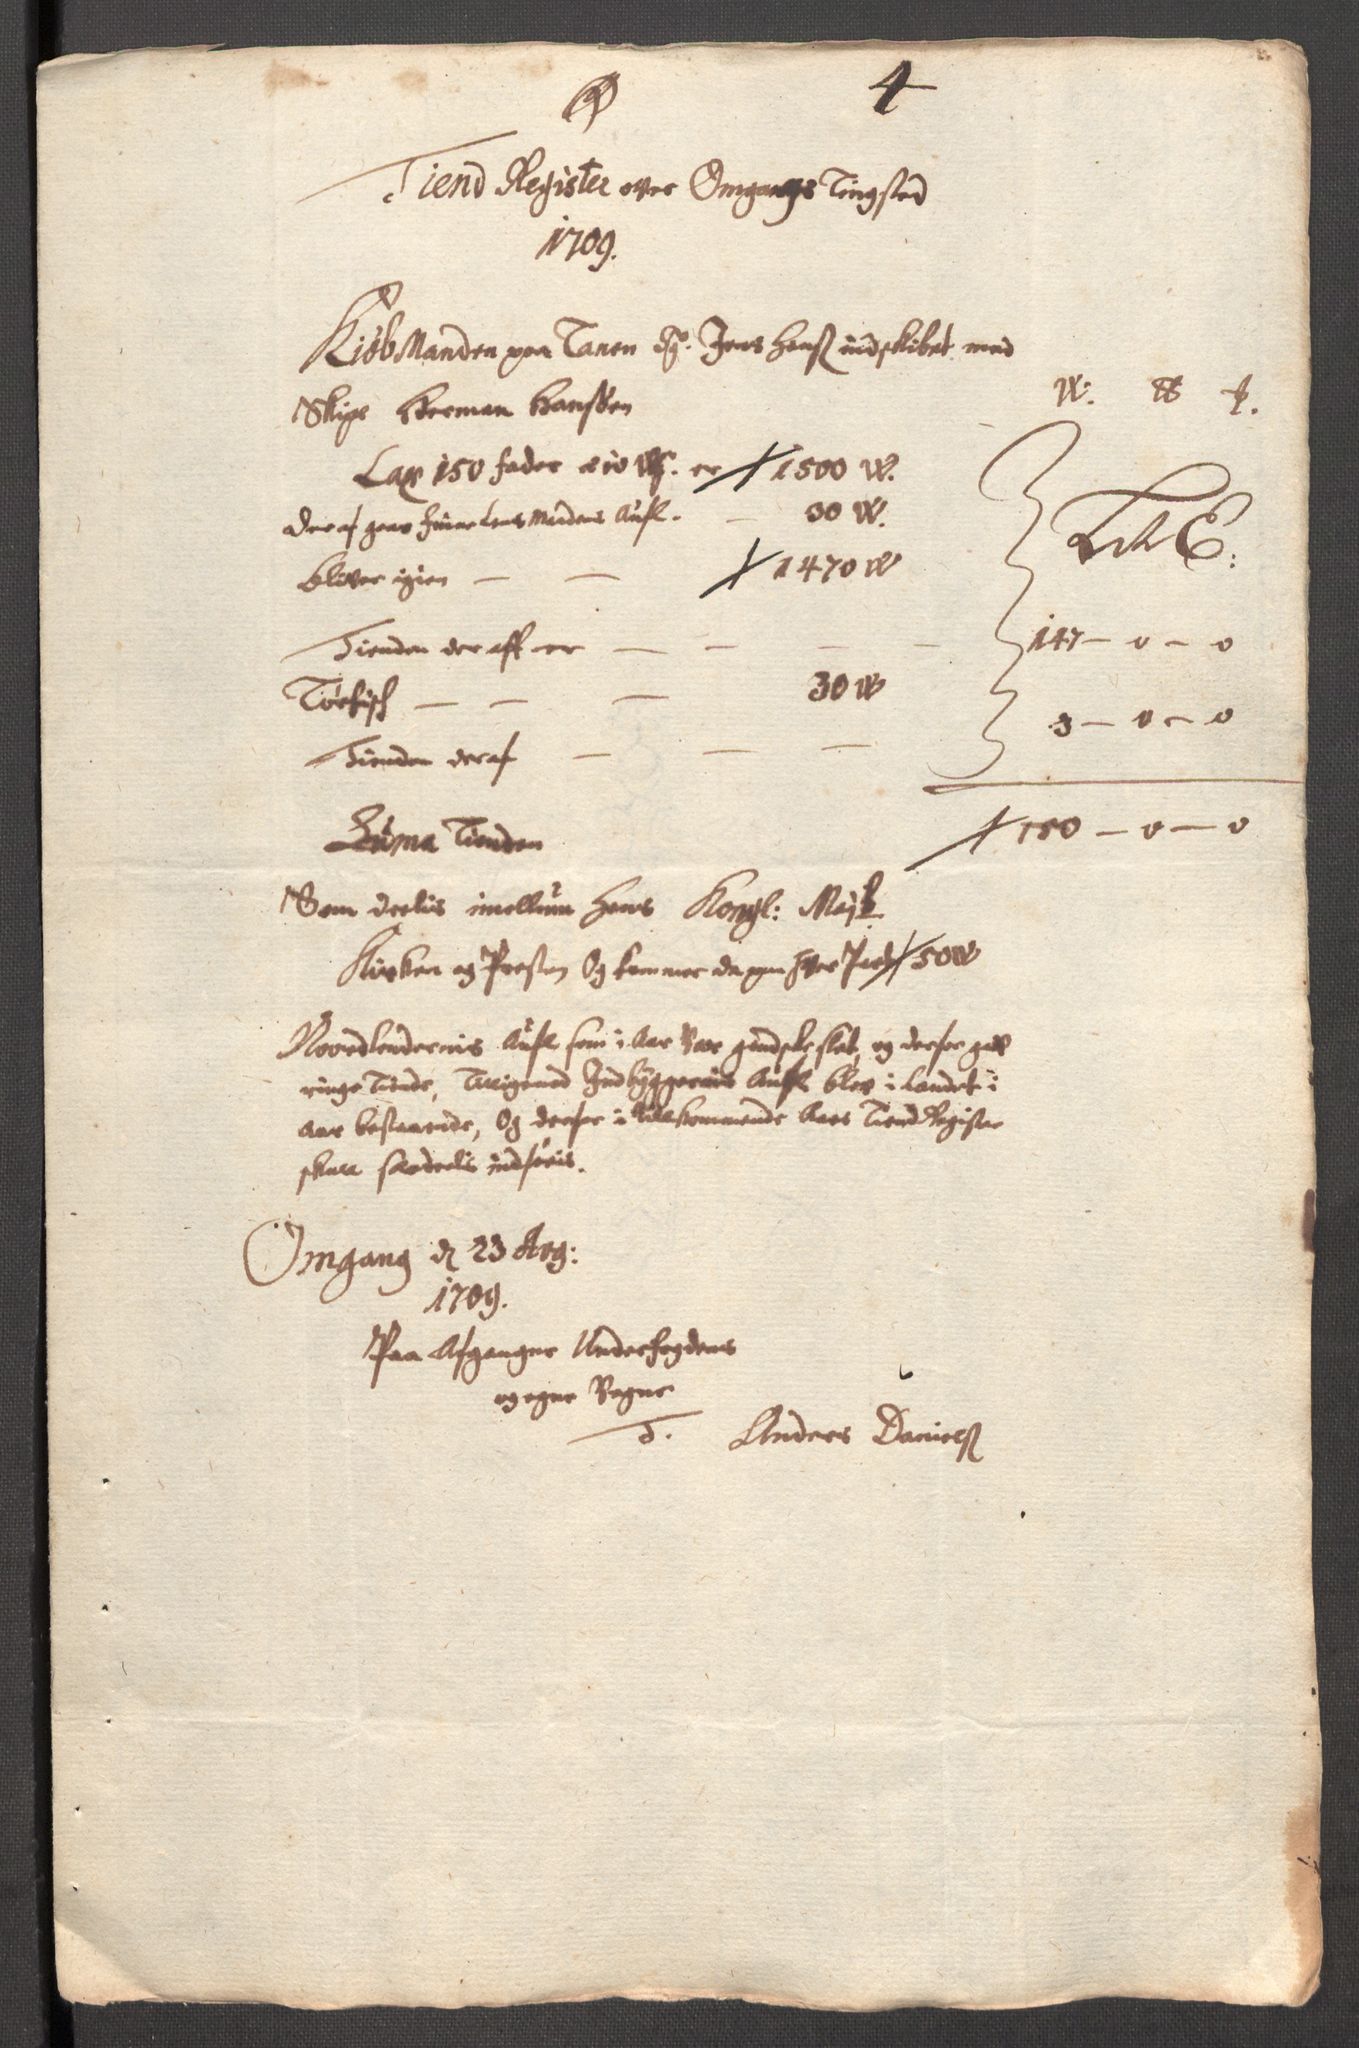 4
Tiend Register over Omgangs Tingsted
1709.
Kiöb Manden paa Tanen Sr. Jens Hanß indskibet med
Skipr Herman Hanßen
W. ℔
Lax 150 fader a 10 W. er 1500 W.
der af gaar Finne Lens Mandens Aufl. — 30 W.
bliver igien — — 1470 W
Tienden der aff er — — — — 147 — 0 — 0
Törfisch — — — 30 W
Tienden deraf — — — 3 — 0 — 0
Suma Tienden 150 — 0 — 0
Som deelis imellum Hans Kongl: Majt
Kirken og Presten Og kommer da paa hver Part 50 W
Nordlendernis Aufl som i Aar Var gandske slet, og derfor gaff
ringe Tiende, Tilligemed Indbyggernis Aufl blev i Landet i
Aar bestaaende, Og derfor i tilkommende Aars Tiend Register
skall færdeelis indföris.
Omgang d 23 Aug:
1709.
Paa Afgangne Underfogdens
og egne Vegne
T. Anders Danielß